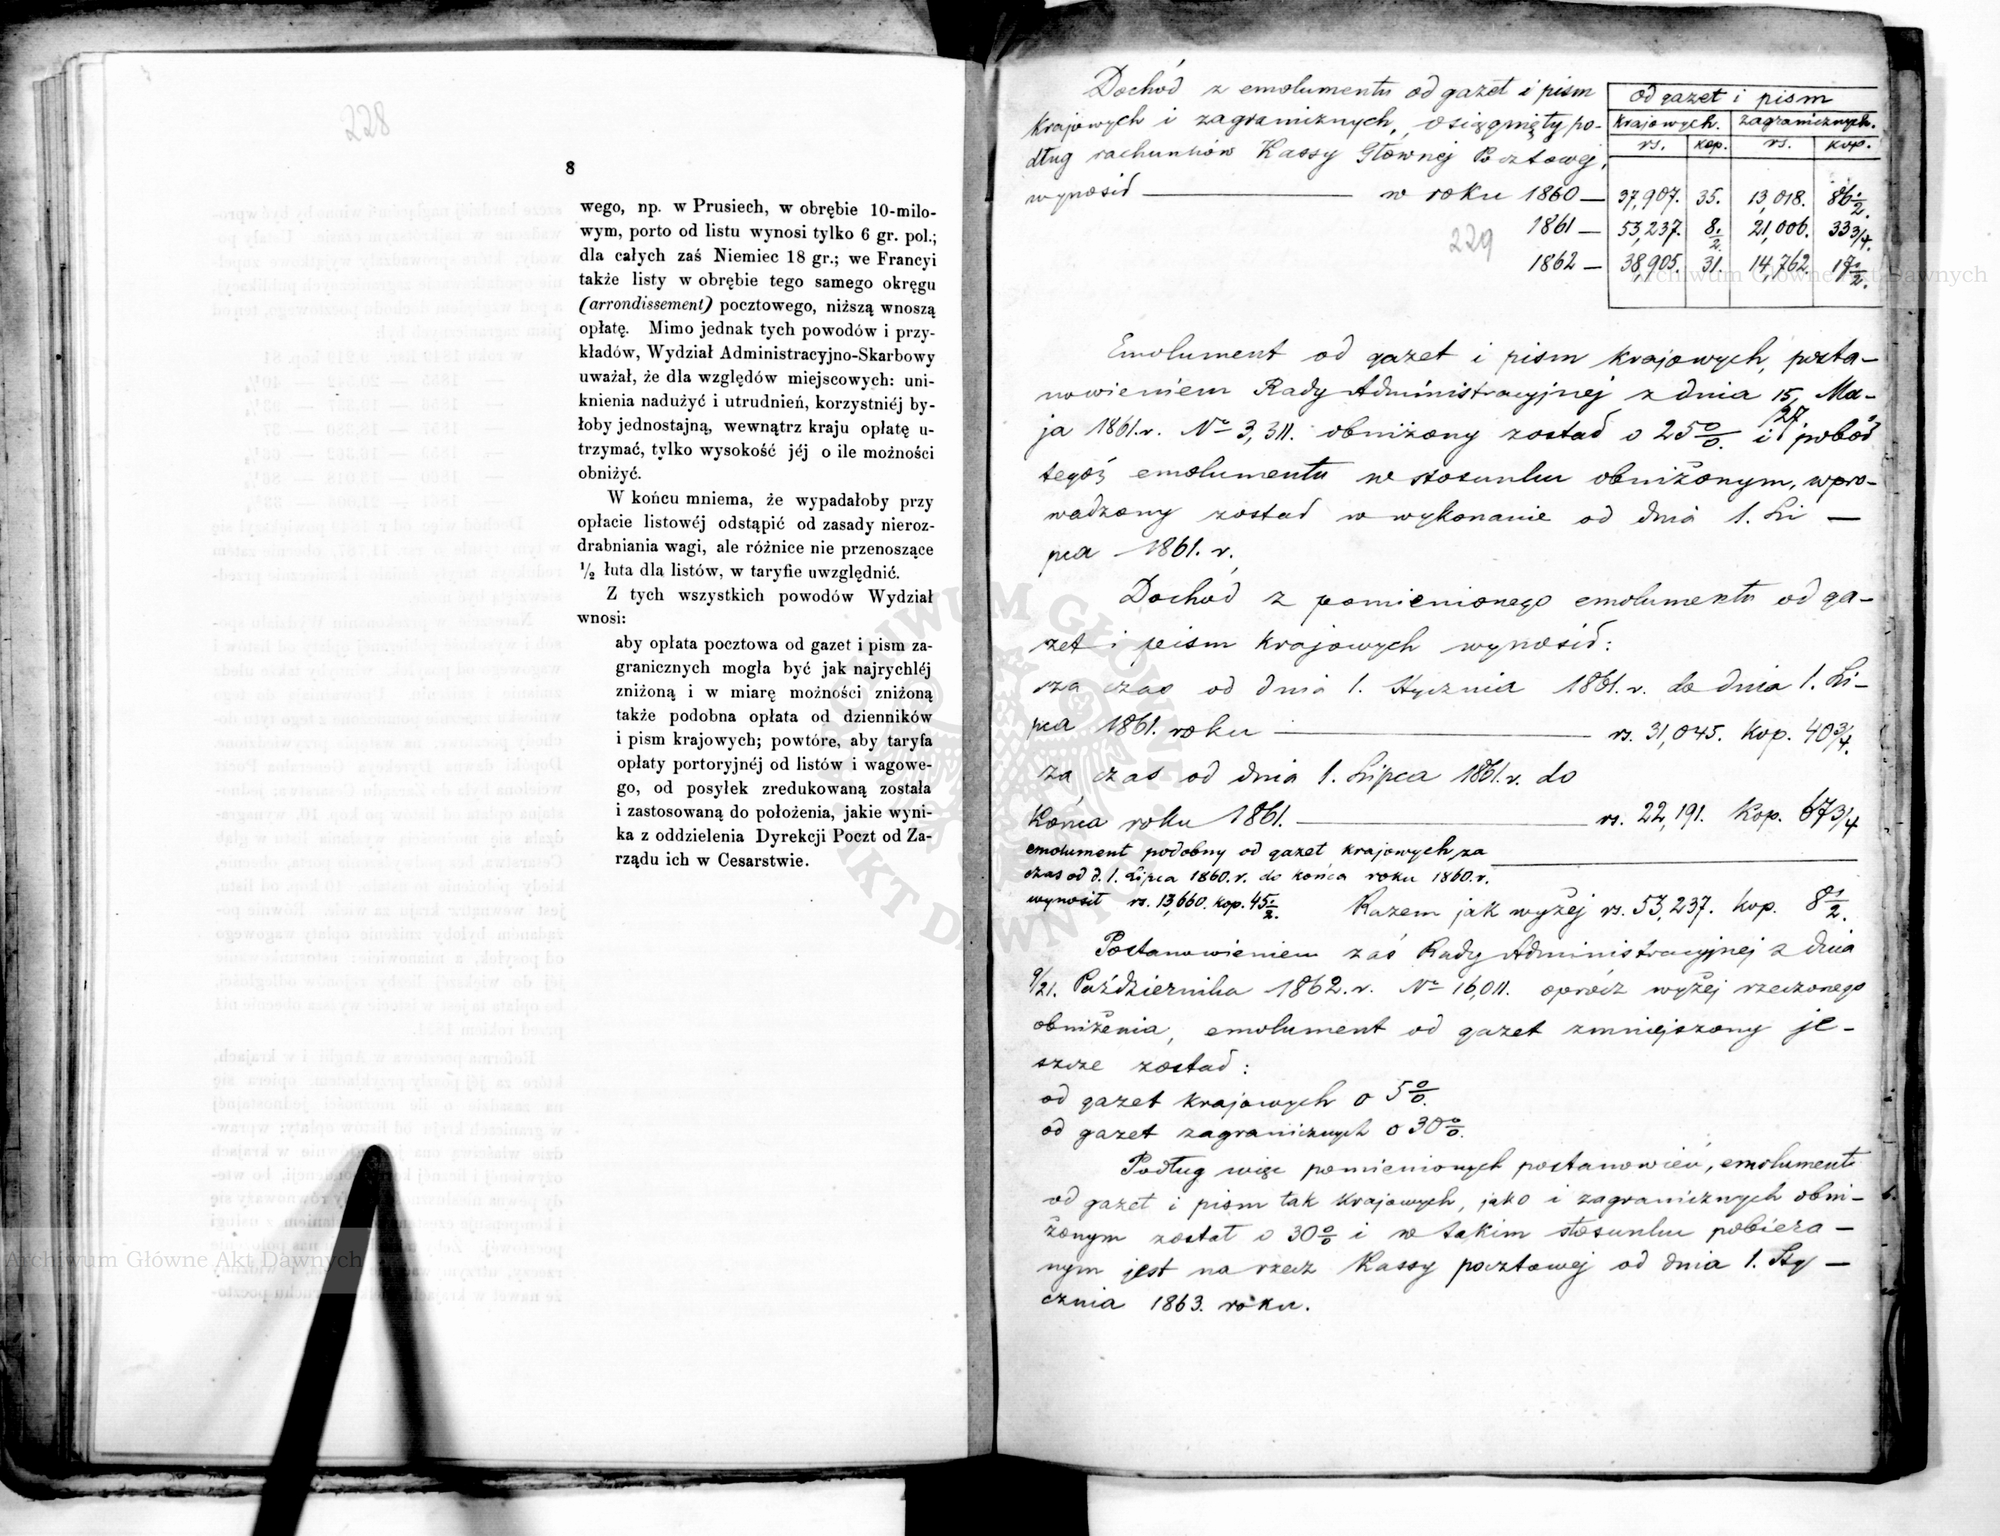 228
8
wego, np. w Prusiech, w obrębie 10-milo-
wym, porto od listu wynosi tylko 6 gr. pol.;
dla całych zaś Niemiec 18 gr.; we Francyi
także listy w obrębie tego samego okręgu
(arrondissement) pocztowego, niższą wnoszą
opłatę. Mimo jednak tych powodów i przy-
kładów, Wydział Administracyjno-Skarbowy
uważał, że dla względów miejscowych: uni-
knienia nadużyć i utrudnień, korzystniéj by-
łoby jednostajną, wewnątrz kraju opłatę u-
trzymać, tylko wysokość jéj o ile możności
obniżyć.
W końcu mniema, że wypadałoby przy
opłacie listowéj odstąpić od zasady nieroz-
drabniania wagi, ale różnice nie przenoszące
½ łuta dla listów, w taryfie uwzględnić.
Z tych wszystkich powodów Wydział
wnosi:
aby opłata pocztowa od gazet i pism za-
granicznych mogła być jak najrychléj
zniżoną i w miarę możności zniżoną
także podobna opłata od dzienników
i pism krajowych; powtóre, aby taryfa
opłaty portoryjnéj od listów i wagowe-
go, od posyłek zredukowaną została
i zastosowaną do położenia, jakie wyni-
ka z oddzielenia Dyrekcji Poczt od Za-
rządu ich w Cesarstwie.
Dochód z emolumentu od gazet i pism
krajowych i zagranicznych, osiągnięty po-
dług rachunków Kassy Głównej Pocztowej,
wynosił — w roku 1860 —
1861 —
1862 —
229
od gazet i pism
krajowych. zagranicznych.
rs. kop. rs. kop.
37,907. 35. 13,018. 86½.
53,237. 8½. 21,006. 33¾.
38,905. 31. 14,762. 17½.
Emolument od gazet i pism krajowych, posta-
nowieniem Rady Administracyjnej z dnia 15/27 Ma-
ja 1861.r. No 3,311. obniżony został o 25% i pobór
tegoż emolumentu w stosunku obniżonym, wpro-
wadzony został w wykonanie od dnia 1. Li —
pca 1861.r.
Dochód z pomienionego emolumentu od ga-
zet i pism krajowych wynosił:
za czas od dnia 1. Stycznia 1861.r. do dnia 1. Li-
pca 1861. roku — rs. 31,045. kop. 40¾.
za czas od dnia 1. Lipca 1861.r. do
końca roku 1861. — rs. 22,191. kop. 67¾
emolument podobny od gazet krajowych za
czas od d. 1. Lipca 1860.r. do końca roku 1860.r.
wynosił rs. 13,660. kop. 45½. Razem jak wyżej rs. 53,237. kop. 8½.
Postanowieniem zaś Rady Administracyjnej z dnia
9/21. Października 1862.r. No 16,011. oprócz wyżej rzeczonego
obniżenia, emolument od gazet zmniejszony je-
szcze został:
od gazet krajowych o 5%.
od gazet zagranicznych o 30%.
Podług więc pomienionych postanowień, emolument
od gazet i pism tak krajowych, jako i zagranicznych obni-
żonym został o 30% i w takim stosunku pobiera —
nym jest na rzecz Kassy pocztowej od dnia 1. Sty —
cznia 1863. roku.
Archiwum Główne Akt Dawnych
Archiwum Główne Akt Dawnych
ARCHIWUM GŁÓWNE AKT DAWNYCH